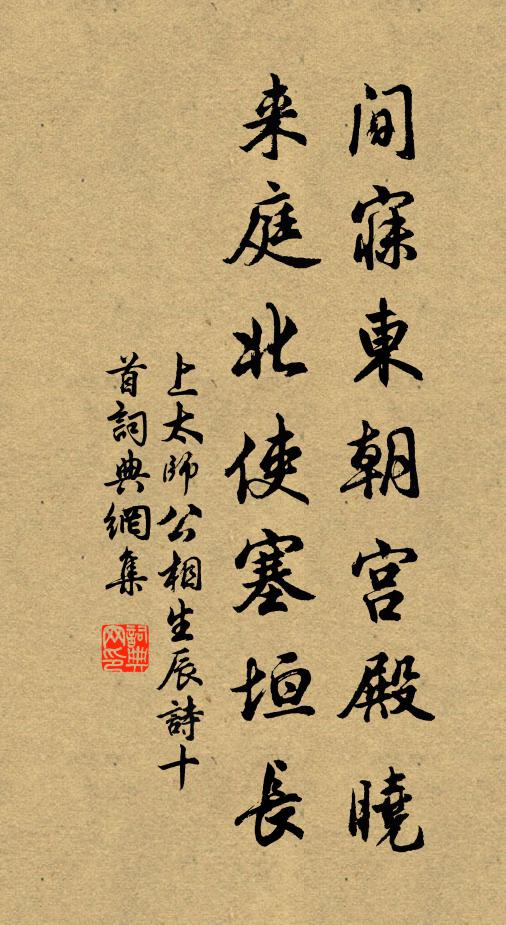 間寐東朝宮殿曉
来庭北使塞垣長
上太師公相生辰詩十
首詞典網集
詞典
网印